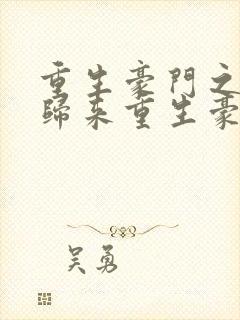 重生豪門之
歸來重生豪
吴勇